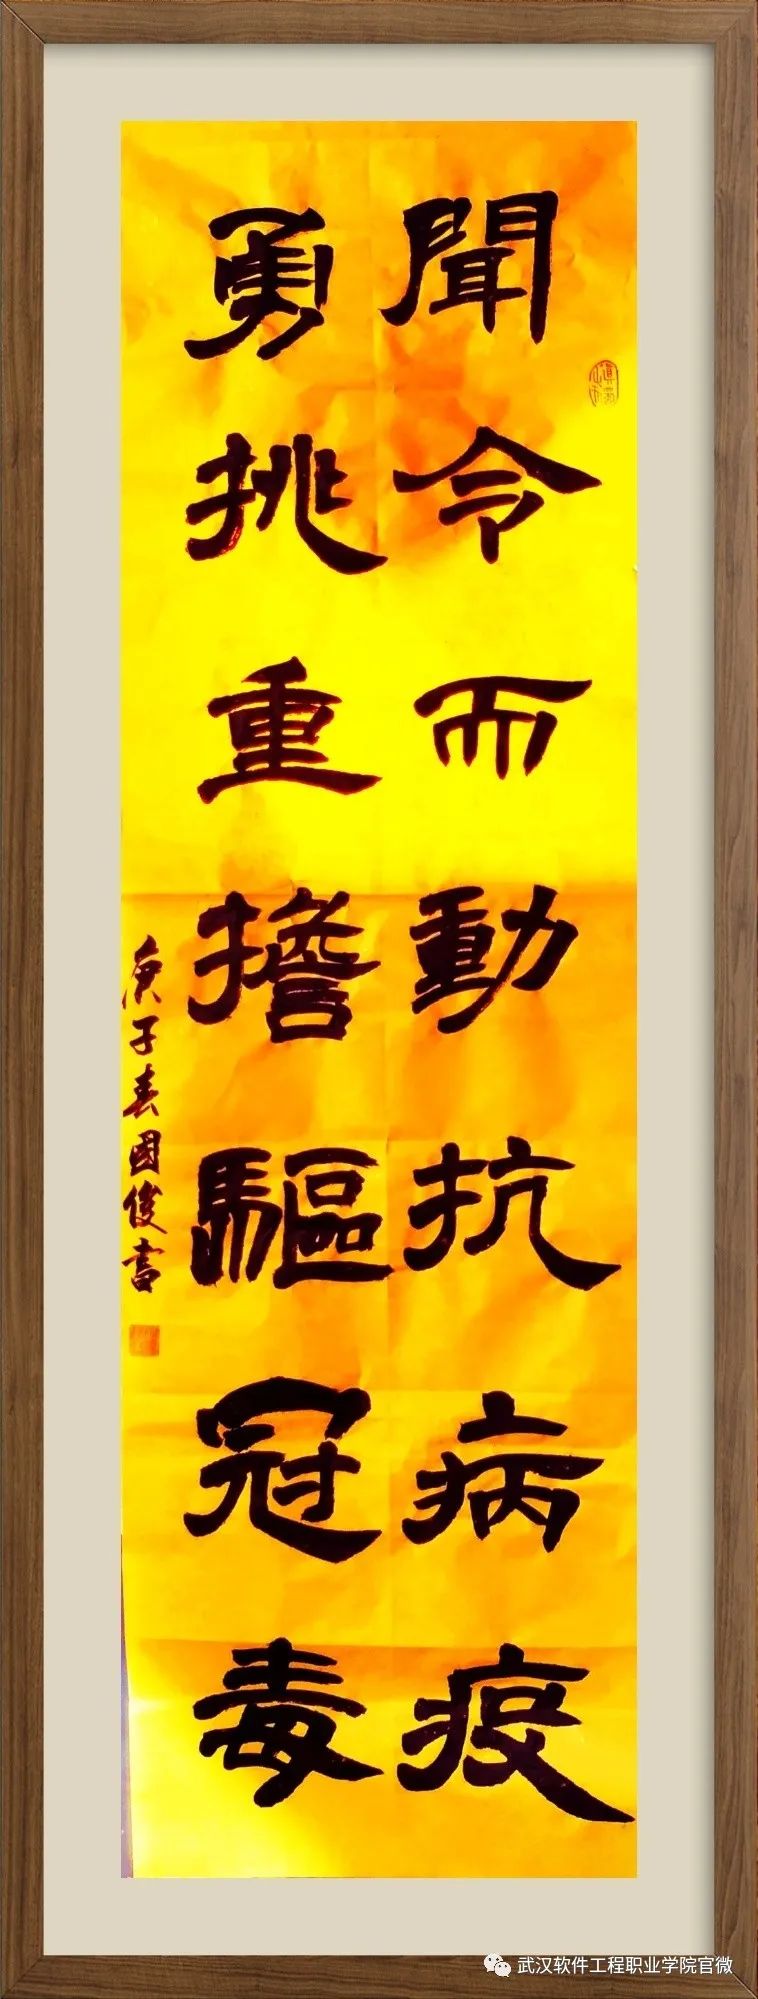 聞令而動抗病疫
勇挑重擔驅冠毒
庚子春國俊書
武汉软件工程职业学院官微